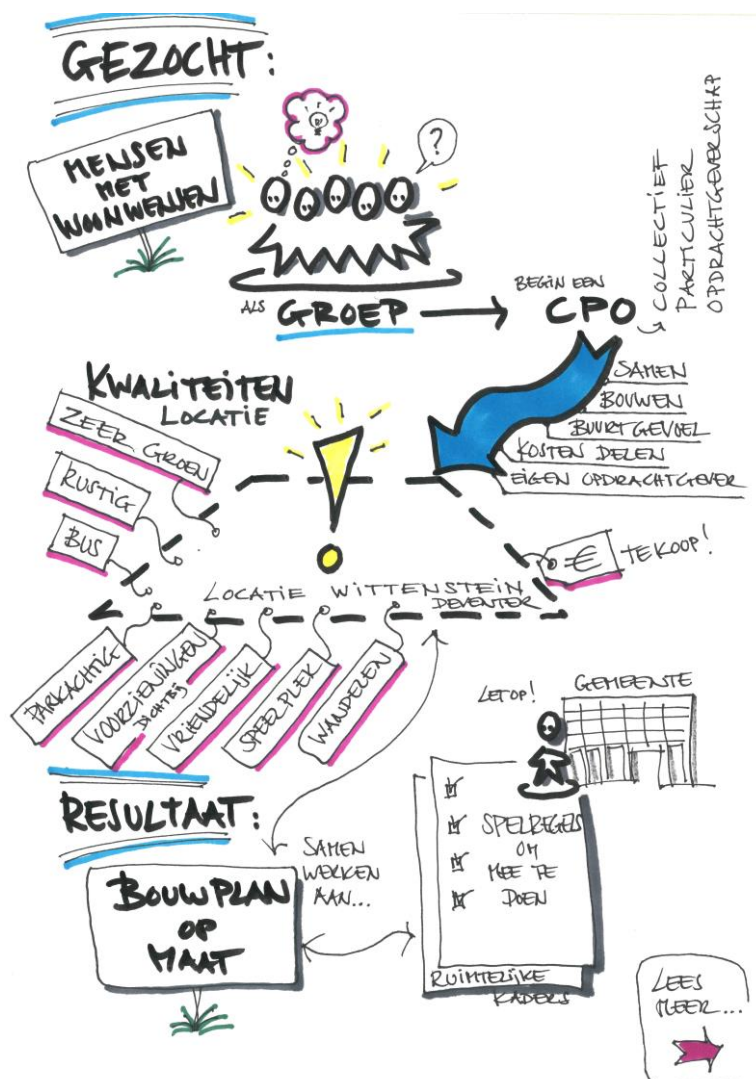 GEZOCHT:
MENSEN
MET
WOONWENSEN
?
ALS GROEP
BEGIN EEN
CPO
COLLECTIEF
PARTICULIER
OPDRACHTGEVERSCHAP
SAMEN
BOUWEN
BUURTGEVOEL
KOSTEN DELEN
EIGEN OPDRACHTGEVER
KWALITEITEN
LOCATIE
ZEER GROEN
RUSTIG
BUS
!
=€
TE KOOP!
LOCATIE WITTENSTEIN
DEVENTER
PARKACHTIG
VOORZIENINGEN
DICHTBIJ
VRIENDELIJK
SPEELPLEK
WANDELEN
LET OP!
GEMEENTE
SPELREGELS
OM
MEE TE
DOEN
RUIMTELIJKE
KADERS
RESULTAAT:
BOUWPLAN
OP
MAAT
SAMEN
WERKEN
AAN...
LEES
MEER...